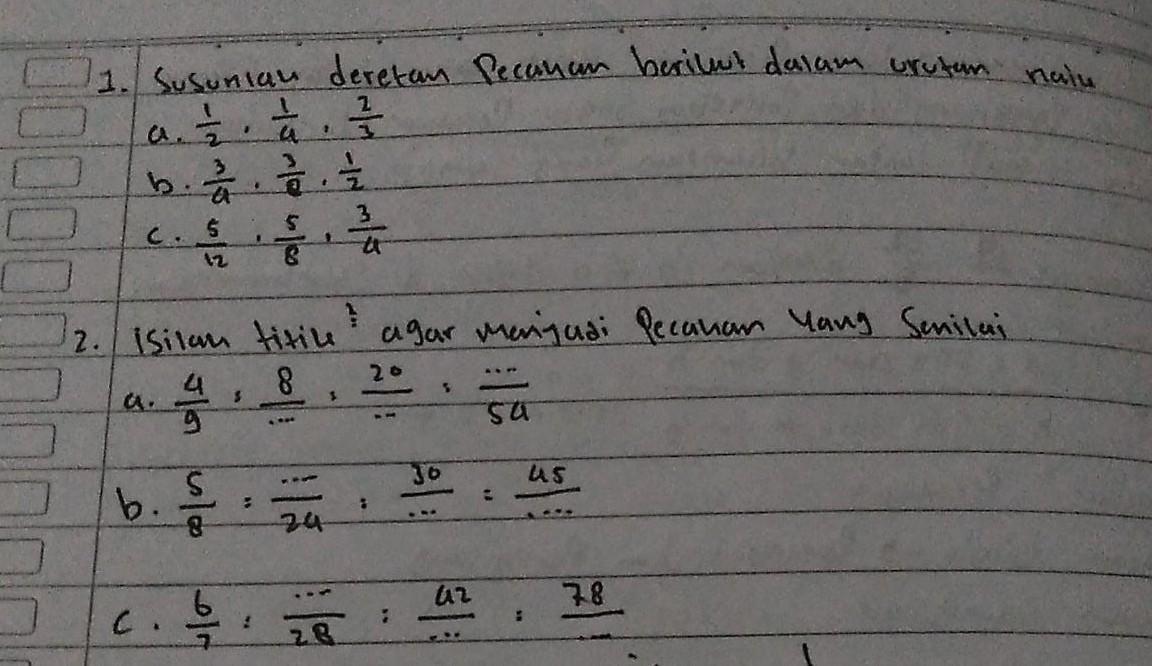 1. Susunlah deretan Pecahan berikut dalam urutan naik
a. 1/2 , 1/4 , 2/3
b. 3/4 , 3/8 , 1/2
c. 5/12 , 5/8 , 3/4
2. isilah titik² agar menjadi Pecahan yang Senilai
a. 4/9 = 8/... = 20/... = .../54
b. 5/8 = .../24 = 30/... = 45/....
c. 6/7 = .../28 = 42/... = 78/...